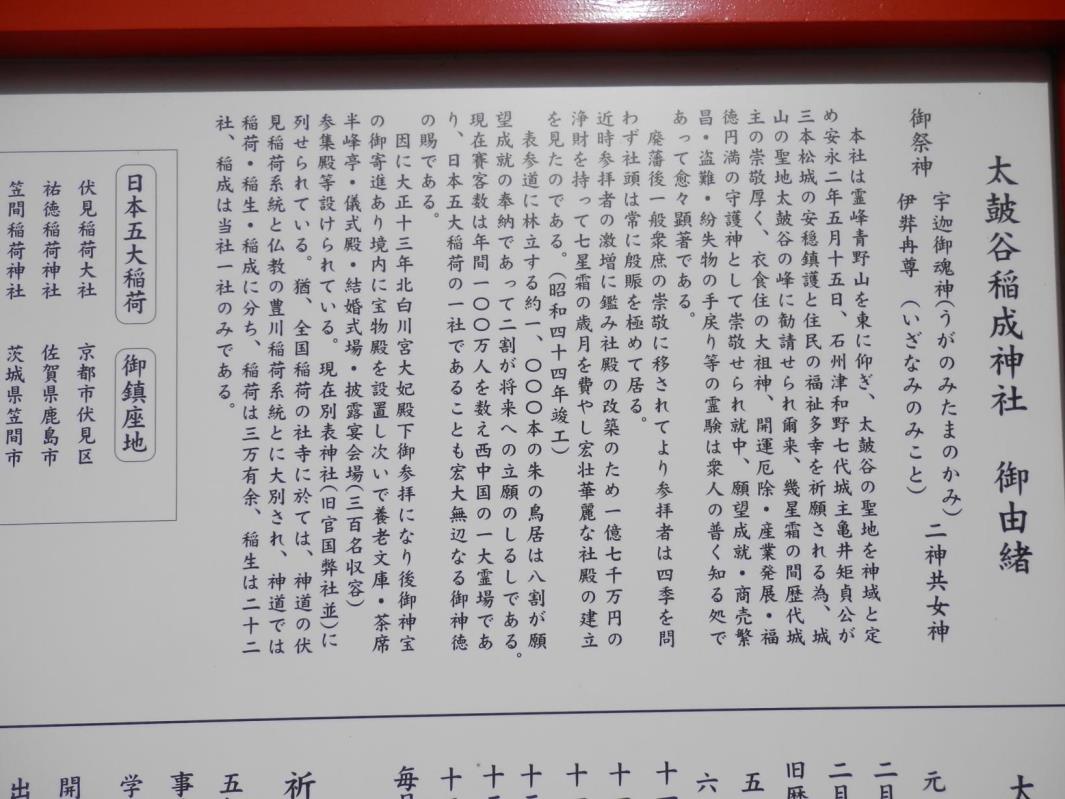 太皷谷稲成神社　御由緒
御祭神
宇迦御魂神(うがのみたまのかみ)
伊弉冉尊　(いざなみのみこと)
二神共女神
本社は霊峰青野山を東に仰ぎ、太皷谷の聖地を神域と定
め安永二年五月十五日、石州津和野七代城主亀井矩貞公が
三本松城の安穏鎮護と住民の福祉多幸を祈願される為、城
山の聖地太皷谷の峰に勧請せられ爾来、幾星霜の間歴代城
主の崇敬厚く、衣食住の大祖神、開運厄除・産業発展・福
徳円満の守護神として崇敬せられ就中、願望成就・商売繁
昌・盗難・紛失物の手戻り等の霊験は衆人の普く知る処で
あって愈々顕著である。
廃藩後一般衆庶の崇敬に移されてより参拝者は四季を問
わず社頭は常に殷賑を極めて居る。
近時参拝者の激増に鑑み社殿の改築のため一億七千万円の
浄財を持って七星霜の歳月を費やし宏壮華麗な社殿の建立
を見たのである。(昭和四十四年竣工)
表参道に林立する約一、〇〇〇本の朱の鳥居は八割が願
望成就の奉納であって二割が将来への立願のしるしである。
現在賽客数は年間一〇〇万人を数え西中国の一大霊場であ
り、日本五大稲荷の一社であることも宏大無辺なる御神徳
の賜である。
因に大正十三年北白川宮大妃殿下御参拝になり後御神宝
の御寄進あり境内に宝物殿を設置し次いで養老文庫・茶席
半峰亭・儀式殿・結婚式場・披露宴会場(三百名収容)
参集殿等設けられている。現在別表神社(旧官国弊社並)に
列せられている。猶、全国稲荷の社寺に於ては、神道の伏
見稲荷系統と仏教の豊川稲荷系統とに大別され、神道では
稲荷・稲生・稲成に分ち、稲荷は三万有余、稲生は二十二
社、稲成は当社一社のみである。
日本五大稲荷　御鎮座地
伏見稲荷大社　京都市伏見区
祐徳稲荷神社　佐賀県鹿島市
笠間稲荷神社　茨城県笠間市
大
元
二月
二月
旧暦
五
六
十一
十一
十一
十
十
毎月
祈
五
事
学
開
出